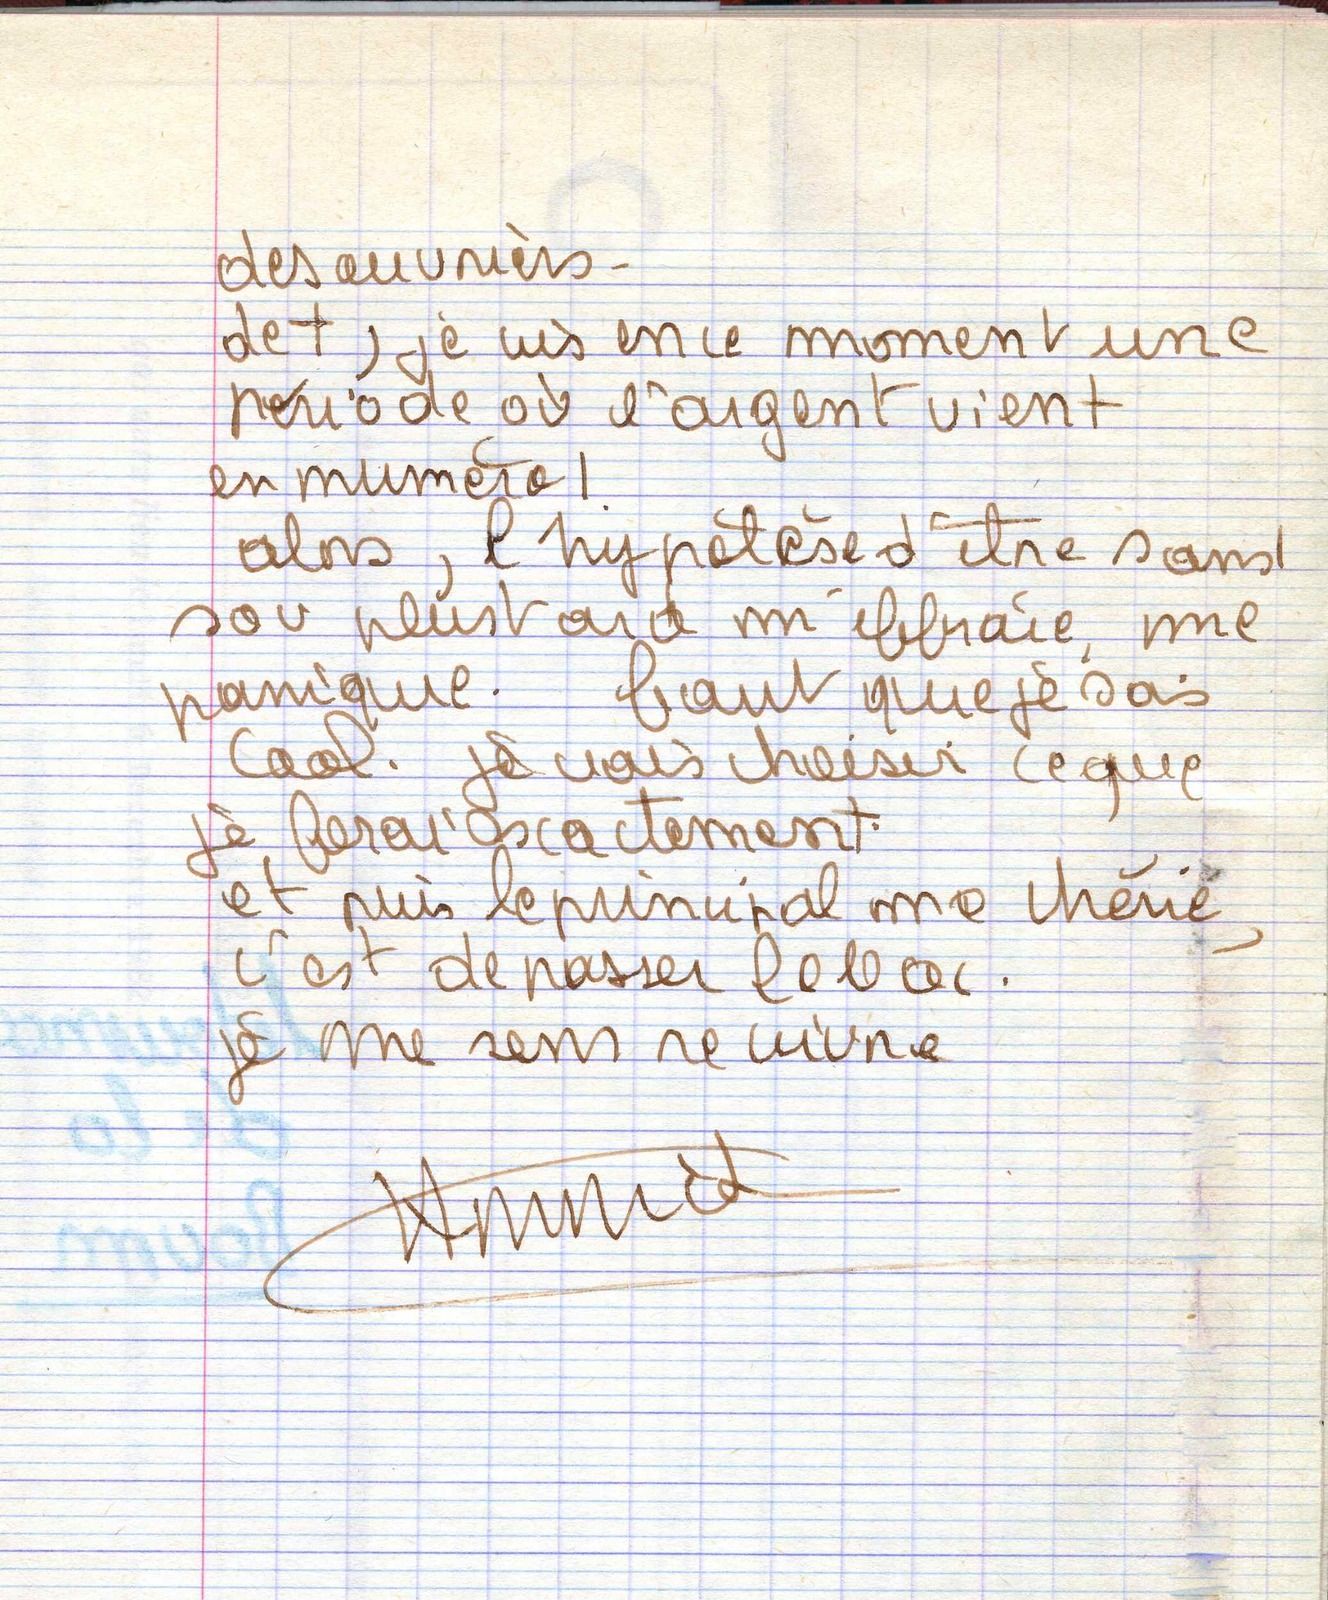 des ouvriers -
det, je vis en ce moment une
période où l'argent vient
en numéro 1
alors, l'hypotèse d'être sans
sou plus tard m'effraie, me
panique. faut que je sois
cool. je vais choisir ce que
je ferai exactement.
et puis le principal ma chérie,
c'est de passer le bac.
je me sens revivre